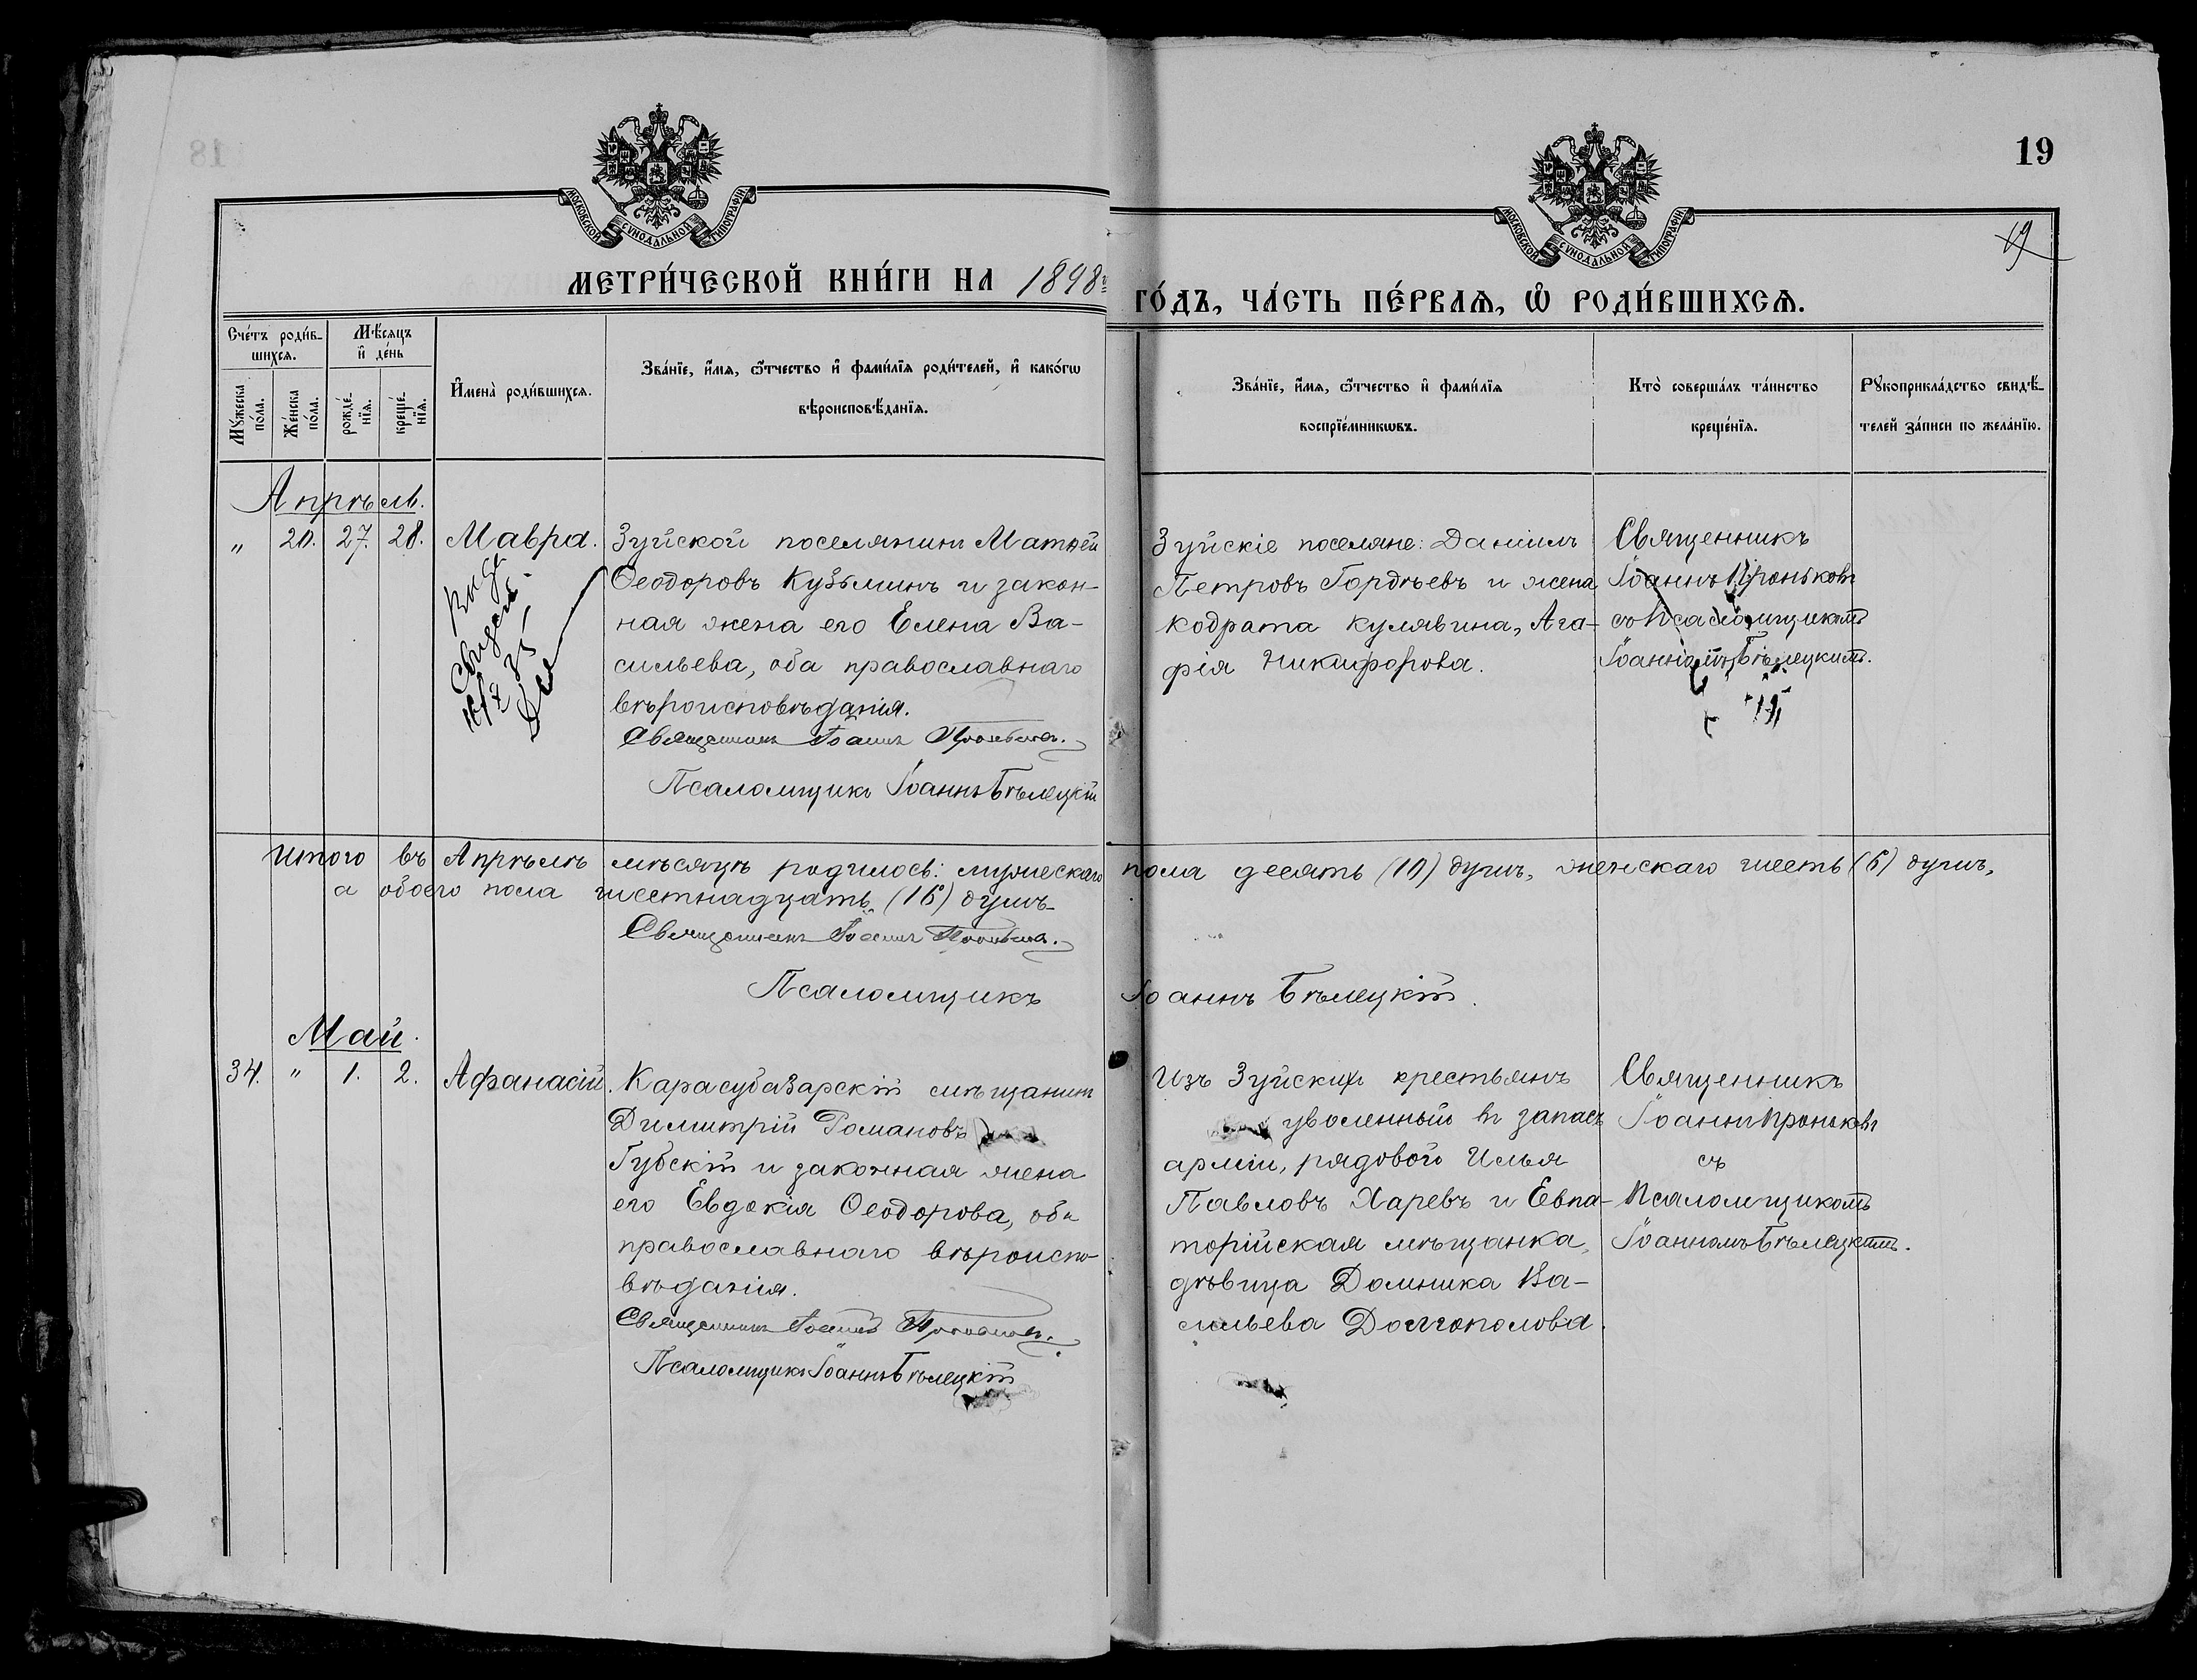 19
19
МОСКОВСКОЙ СУНОДАЛЬНОЙ ТИПОГРАФІИ
МОСКОВСКОЙ СУНОДАЛЬНОЙ ТИПОГРАФІИ
МЕТРИ́ЧЕСКОЙ КНИ́ГИ НА 1898 ГО́ДЪ, ЧА́СТЬ ПЕ́РВАѦ, Ѡ҆ РОДИ́ВШИХСѦ.
Сче́тъ роди́в-
шихся.
Мѣ́сяцъ
и҆ де́нь
Мꙋ́жеска
по́ла.
Же́нска
по́ла.
рожде́-
нїѧ.
креще́-
нїѧ.
И҆мена̀ роди́вшихсѧ.
Зва́нїе, и҆́мѧ, ѻ҆́тчество и҆ фами́лїѧ роди́телей, и҆ како́гѡ
вѣроисповѣ́данїѧ.
Зва́нїе, и҆́мѧ, ѻ҆́тчество и҆ фами́лїѧ
воспрїе́мникѡвъ.
Кто̀ соверша́лъ та́инство
креще́нїѧ.
Рꙋкоприкла́дство свидѣ́-
телей за́писи по жела́нїю.
Апрѣль.
„ 20. 27. 28. Мавра.
Зуйской поселянинъ Матѳей
Ѳеодоровъ Кузьминъ и закон-
ная жена его Елена Ва-
сильева, оба православнаго
вѣроисповѣданія.
Священникъ Іоаннъ Проньковъ.
Псаломщикъ Іоаннъ Бѣлецкій
Зуйскіе поселяне: Даніилъ
Петровъ Гордѣевъ и жена
Кодрата Кулявина, Ага-
фія Никифорова.
Священникъ
Іоаннъ Проньковъ
съ Псаломщикомъ
Іоанномъ Бѣлецкимъ.
Итого въ Апрѣлѣ мѣсяцѣ родилось: мужескаго пола десять (10) душъ, женскаго шесть (6) душъ,
а обоего пола шестнадцать (16) душъ
Священникъ Іоаннъ Проньковъ.
Псаломщикъ Іоаннъ Бѣлецкій.
Май.
34. „ 1. 2. Афанасій.
Карасубазарскій мѣщанинъ
Димитрій Романовъ
Губскій и законная жена
его Евдокія Ѳеодорова, оба
православнаго вѣроиспо-
вѣданія.
Священникъ Іоаннъ Проньковъ.
Псаломщикъ Іоаннъ Бѣлецкій
Изъ Зуйскихъ крестьянъ
уволенный въ запасъ
арміи, рядового Илья
Павловъ Харевъ и Евпа-
торійская мѣщанка,
дѣвица Домника Ва-
сильева Долгополова.
Священникъ
Іоаннъ Проньковъ
съ
Псаломщикомъ
Іоанномъ Бѣлецкимъ.